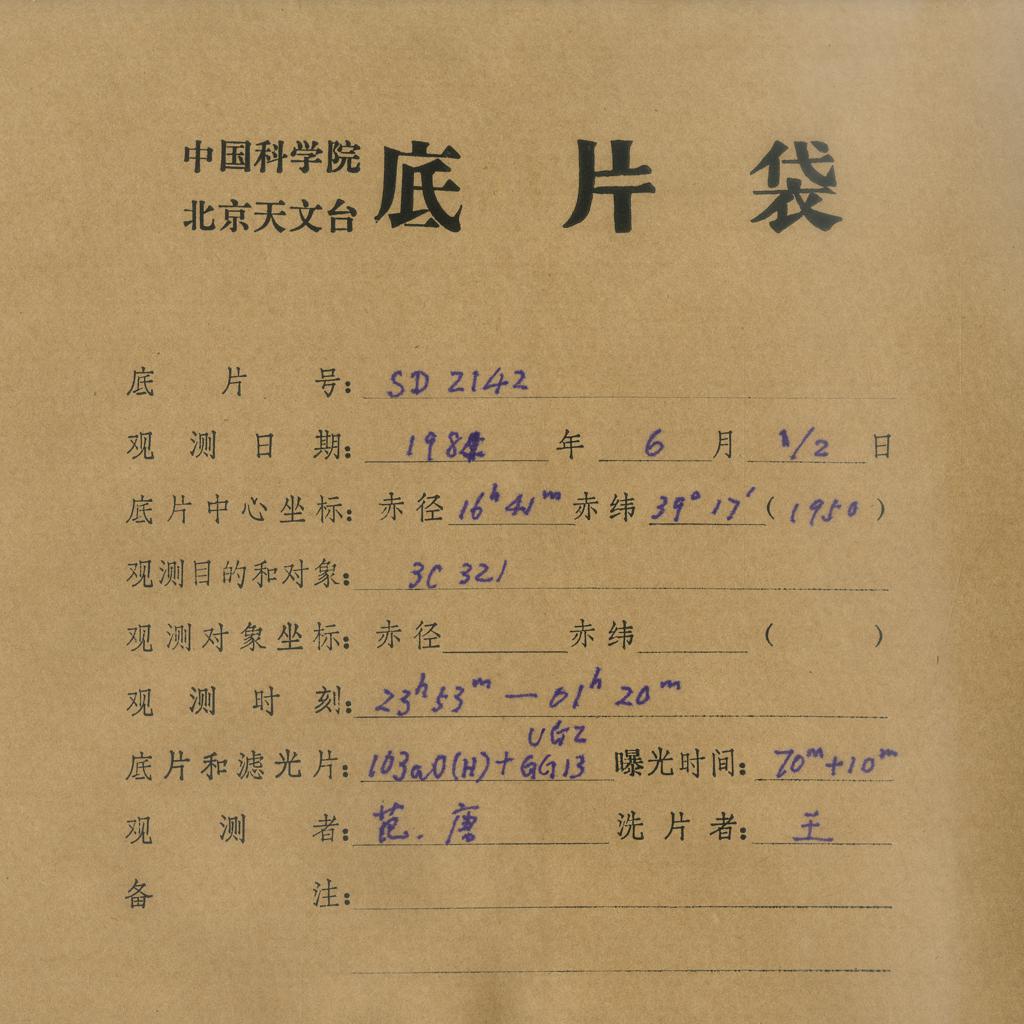 中国科学院
北京天文台
底片袋
底片号: SD 2142
观测日期: 1984 年 6 月 1/2 日
底片中心坐标: 赤径 16ʰ 41ᵐ 赤纬 39° 17′ (1950)
观测目的和对象: 3C 321
观测对象坐标: 赤径 赤纬 ( )
观测时刻: 23ʰ 53ᵐ — 01ʰ 20ᵐ
UG2
底片和滤光片: 103aO(H)+GG13 曝光时间: 70ᵐ+10ᵐ
观测者: 范. 唐 洗片者: 王
备注: